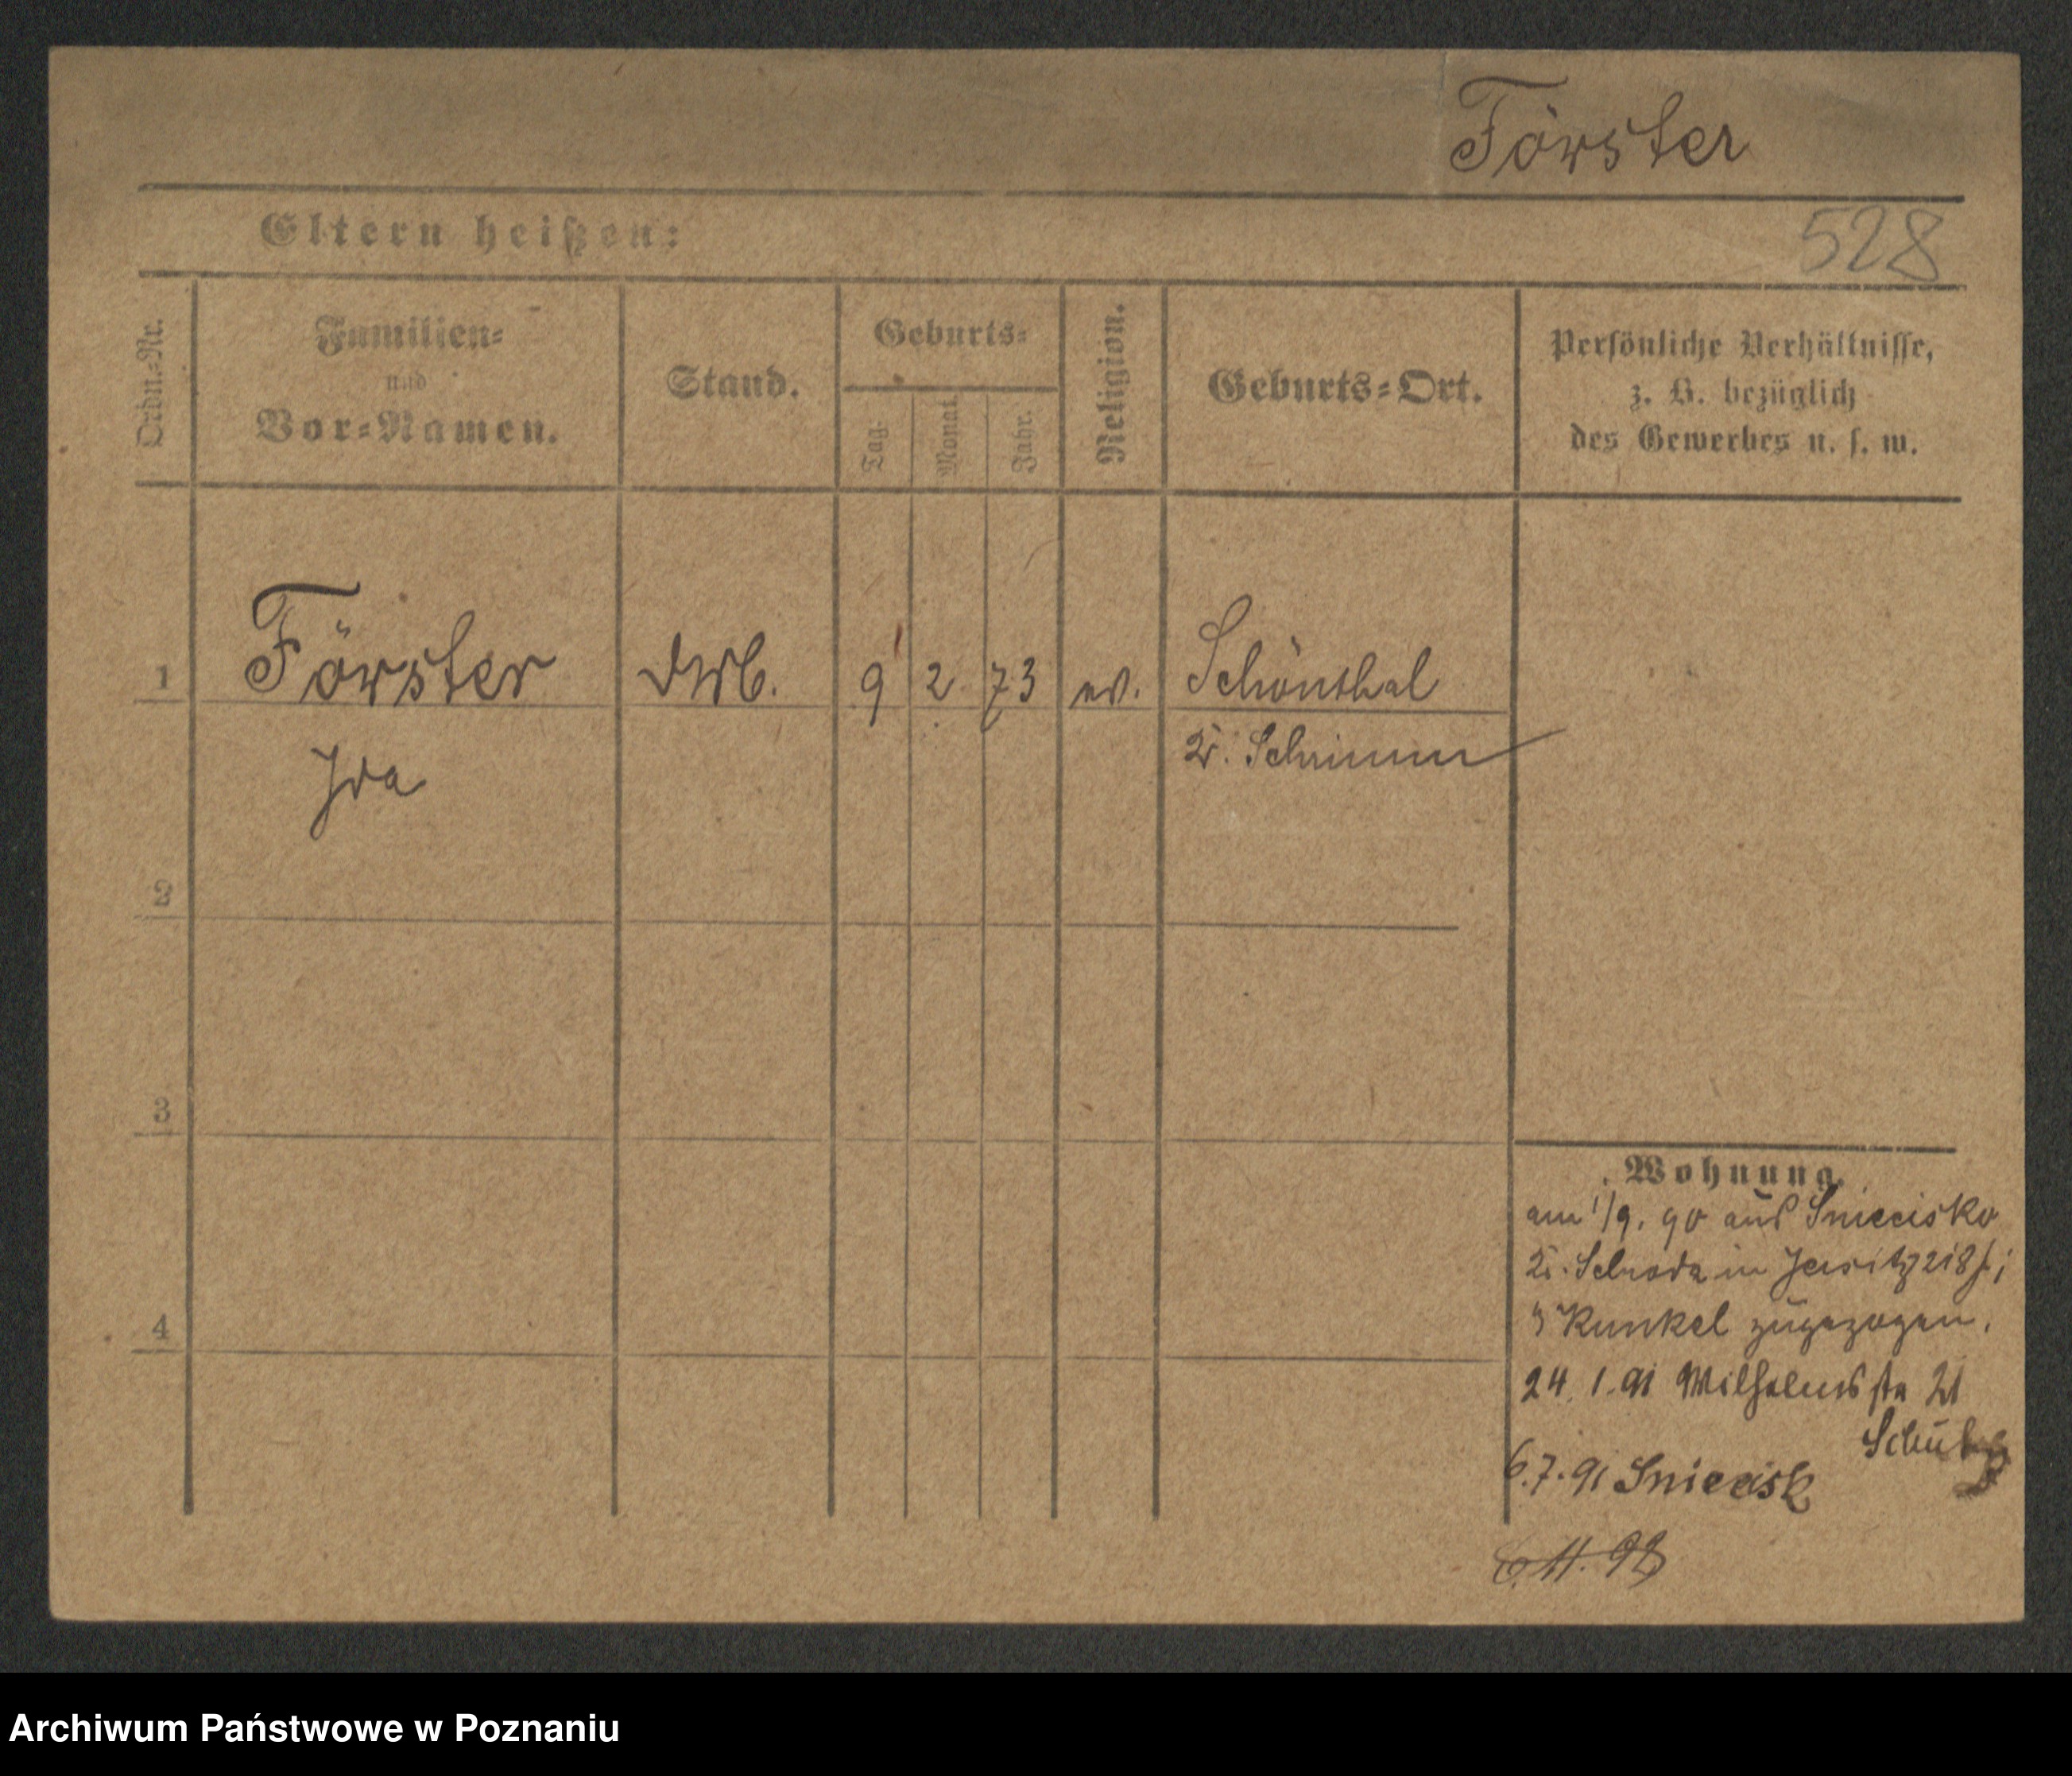 Förster
Eltern heißen:
528
Ordn.=Nr.
Familien=
und
Vor=Namen.
Stand.
Geburts=
Tag.
Monat.
Jahr.
Religion.
Geburts=Ort.
Persönliche Verhältnisse,
z. B. bezüglich
des Gewerbes u. s. w.
1
Förster
9
2
73
ev.
Schönthal
Ida
Kr. Schrimm
2
3
4
Wohnung.
am 1/9. 90 aus Sniecisko
Kr. Schroda in Jersitz
Kunkel zugezogen.
24. 1. 91 Wilhelmsstr 21
Schütz
6.7.91 Sniecisk
Archiwum Państwowe w Poznaniu